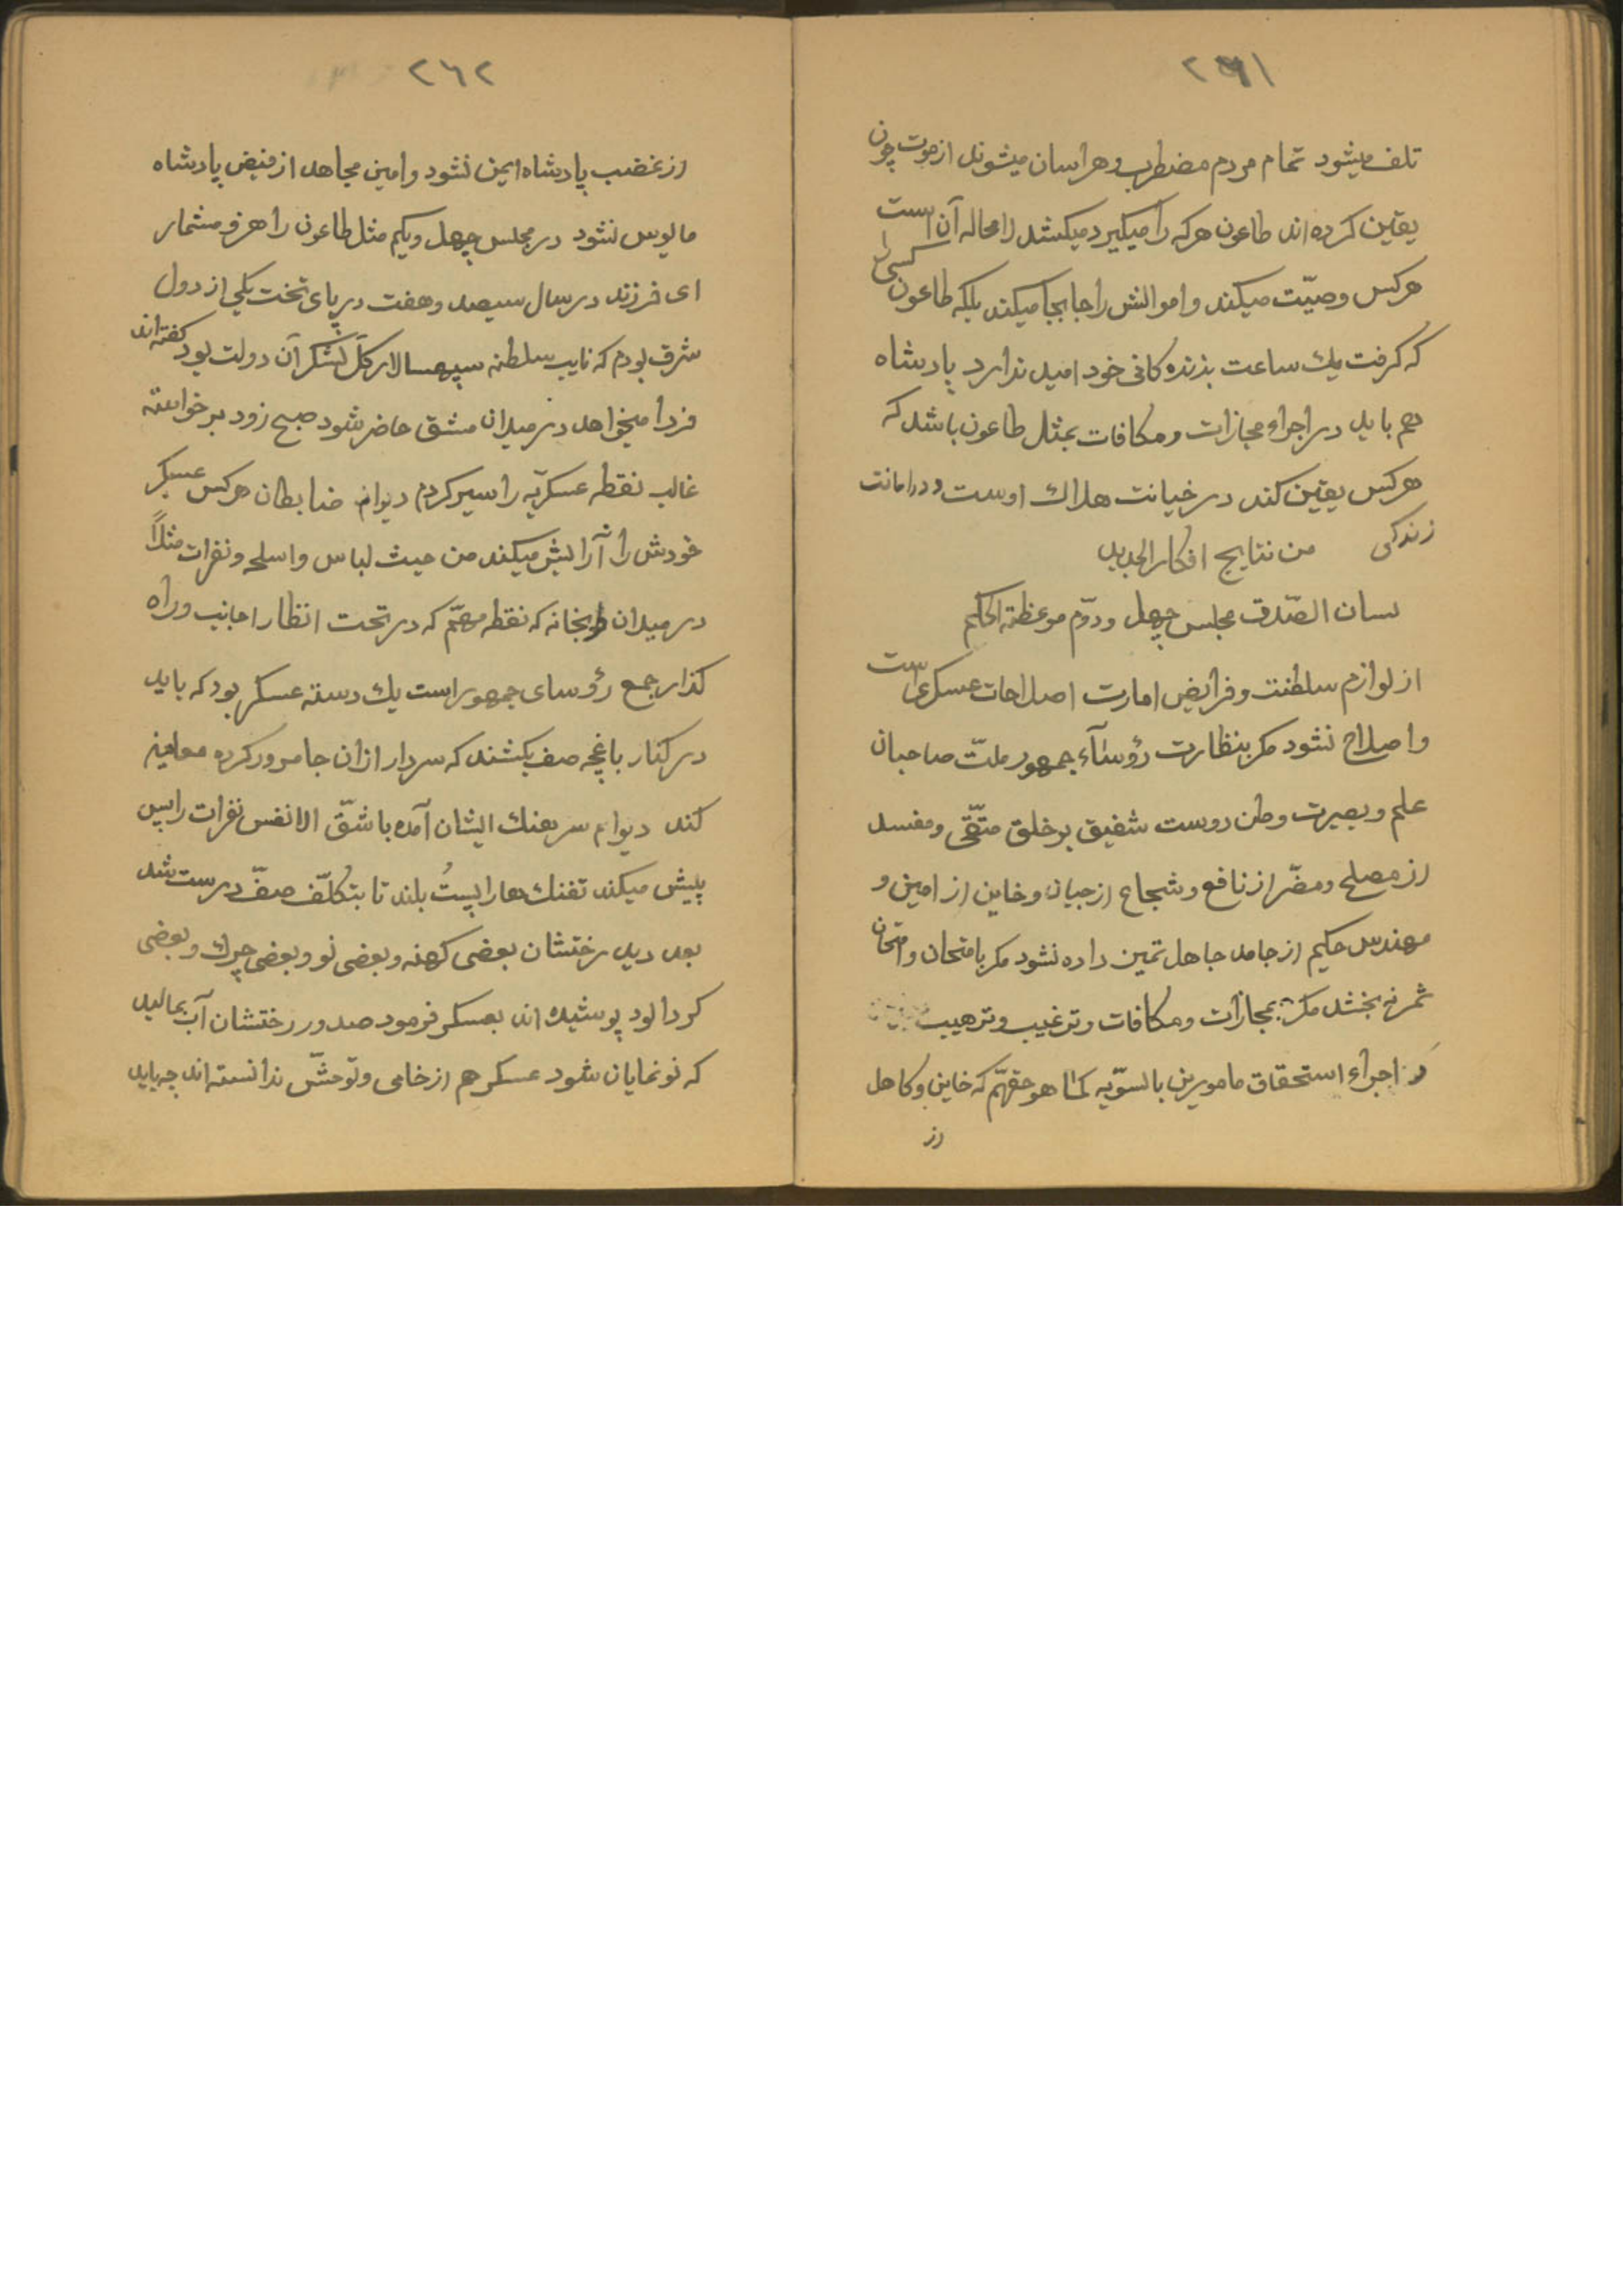 ٢٦١
تلف میشود تمام مردم مضطرب و هراسان میشوند از موت چون
یقین کرده اند طاعون هرکه را میکیرد میکشد لامحاله آن است
هرکس وصیّت میکند و اموالش را جابجا میکند بلکه طاعون کسی را
که کرفت یك ساعت بزنده کانی خود امید ندارد پادشاه
هم باید در اجراء مجازات و مکافات بمثل طاعون باشد که
هرکس یقین کند در خیانت هلاك اوست و در امانت
زندکی من نتایج افکار الجدید
لسان الصّدق مجلس چهل و دوّم موعظة الحکم
از لوازم سلطنت و فرایض امارت اصلاحات عسکری است
و اصلاح نشود مکر بنظارت رؤساء جمهور ملّت صاحبان
علم و بصیرت وطن دوست شفیق بر خلق متّقی و مفسد
از مصلح و مضّر از نافع و شجاع از جبان و خاین از امین و
مهندس حکیم از جامد جاهل تمین داده نشود مکر بامتحان و امتحان
ثمر نه بخشد مکر بمجازات و مکافات و ترغیب و ترهیب
در اجراء استحقاق مامورین بالسوّیه کما هو حقهّم که خاین و کاهل
از
٢٦٢
از غضب پادشاه ایمن نشود و امین مجاهد از فیض پادشاه
مایوس نشود در مجلس چهل و یکم مثل طاعون را هزو مشمار
ای فرزند در سال سیصد و هفت در پای تخت یکی از دول
شرق بودم که نایب سلطنه سپهسالار کلّ لشکر آن دولت بود کفته اند
فردا میخواهد در میدان مشق حاضر شود صبح زود برخواسته
غالب نقطه عسکریّه را سیر کردم دیوام ضابطان هرکس عسکر
خودش را آرایش میکند من حیث لباس و اسلحه و نفرات مثلاً
در میدان طوبخانه که نقطه مهّم که در تحت انظار اجانب و راه
کذار جمع رؤسای جمهور است یك دسته عسکر بود که باید
در کنار باغچه صف بکشند که سردار ازان جا مرور کرده معاینه
کند دیوام سرهنك ایشان آمده با شقّ الانفس نفرات را پس
پیش میکند تفنك ها را پستُ بلند تا بتکلّف صفّ درست شد
بعد دید رختشان بعضی کهنه و بعضی نو و بعضی چرك و بعضی
کردالود پوشیده اند بعسکر فرمود صدور رختشان آب بمالید
که نو نمایان شود عسکر هم از خامی و توحشّ ندانسته اند چه باید